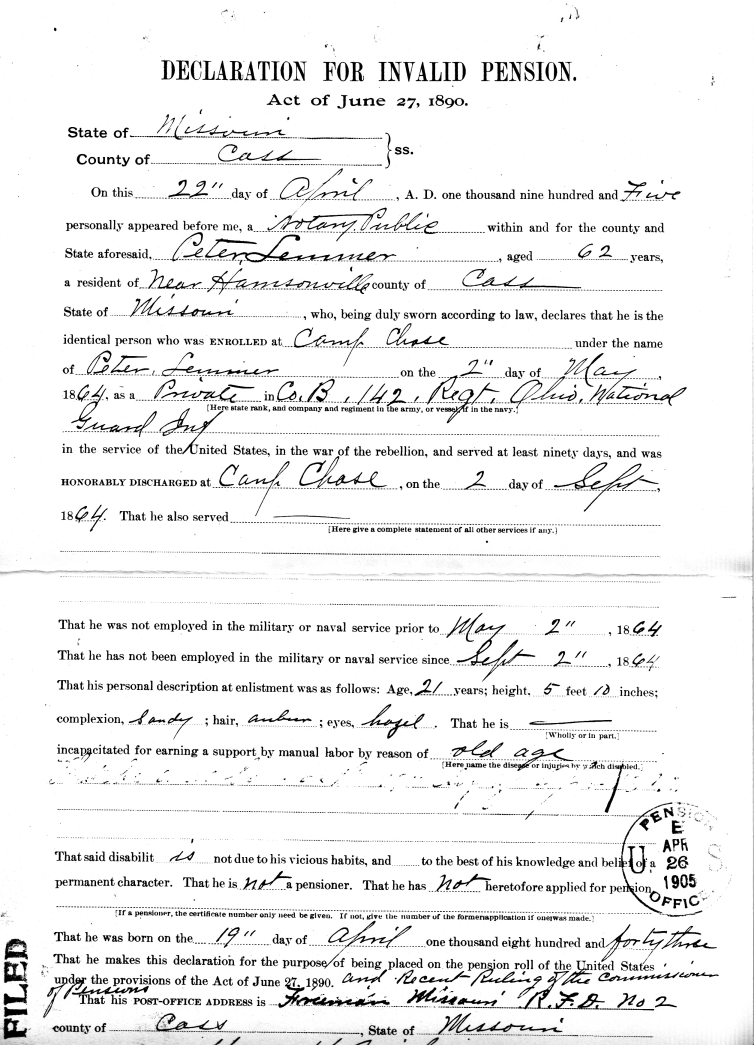 DECLARATION FOR INVALID PENSION.
Act of June 27, 1890.
State of Missouri
County of Cass } ss.
On this 22" day of April, A. D. one thousand nine hundred and Five
personally appeared before me, a Notary Public within and for the county and
State aforesaid, Peter Lemmer, aged 62 years,
a resident of Near Harrisonville county of Cass
State of Missouri, who, being duly sworn according to law, declares that he is the
identical person who was ENROLLED at Camp Chase under the name
of Peter Lemmer on the 2" day of May,
1864, as a Private in Co. B, 142, Regt. Ohio, National
[Here state rank, and company and regiment in the army, or vessel, if in the navy.]
Guard Inf
in the service of the United States, in the war of the rebellion, and served at least ninety days, and was
HONORABLY DISCHARGED at Camp Chase, on the 2 day of Sept,
1864. That he also served
[Here give a complete statement of all other services if any.]
That he was not employed in the military or naval service prior to May 2", 1864
That he has not been employed in the military or naval service since Sept 2", 1864
That his personal description at enlistment was as follows: Age, 21 years; height, 5 feet 10 inches;
complexion, Sandy; hair, auburn; eyes, hazel. That he is
[Wholly or in part.]
incapacitated for earning a support by manual labor by reason of old age
[Here name the disease or injuries by which disabled.]
That said disabilit is not due to his vicious habits, and to the best of his knowledge and belief of a
permanent character. That he is not a pensioner. That he has not heretofore applied for pension
[If a pensioner, the certificate number only need be given. If not, give the number of the former application if one was made.]
PENSION OFFICE
U S
APR
26
1905
That he was born on the 19" day of April one thousand eight hundred and forty three
That he makes this declaration for the purpose of being placed on the pension roll of the United States
under the provisions of the Act of June 27, 1890. and Recent Ruling of the Commissioner
of Pensions
That his POST-OFFICE ADDRESS is Freeman Missouri R.F.D. No 2
county of Cass, State of Missouri
FILED